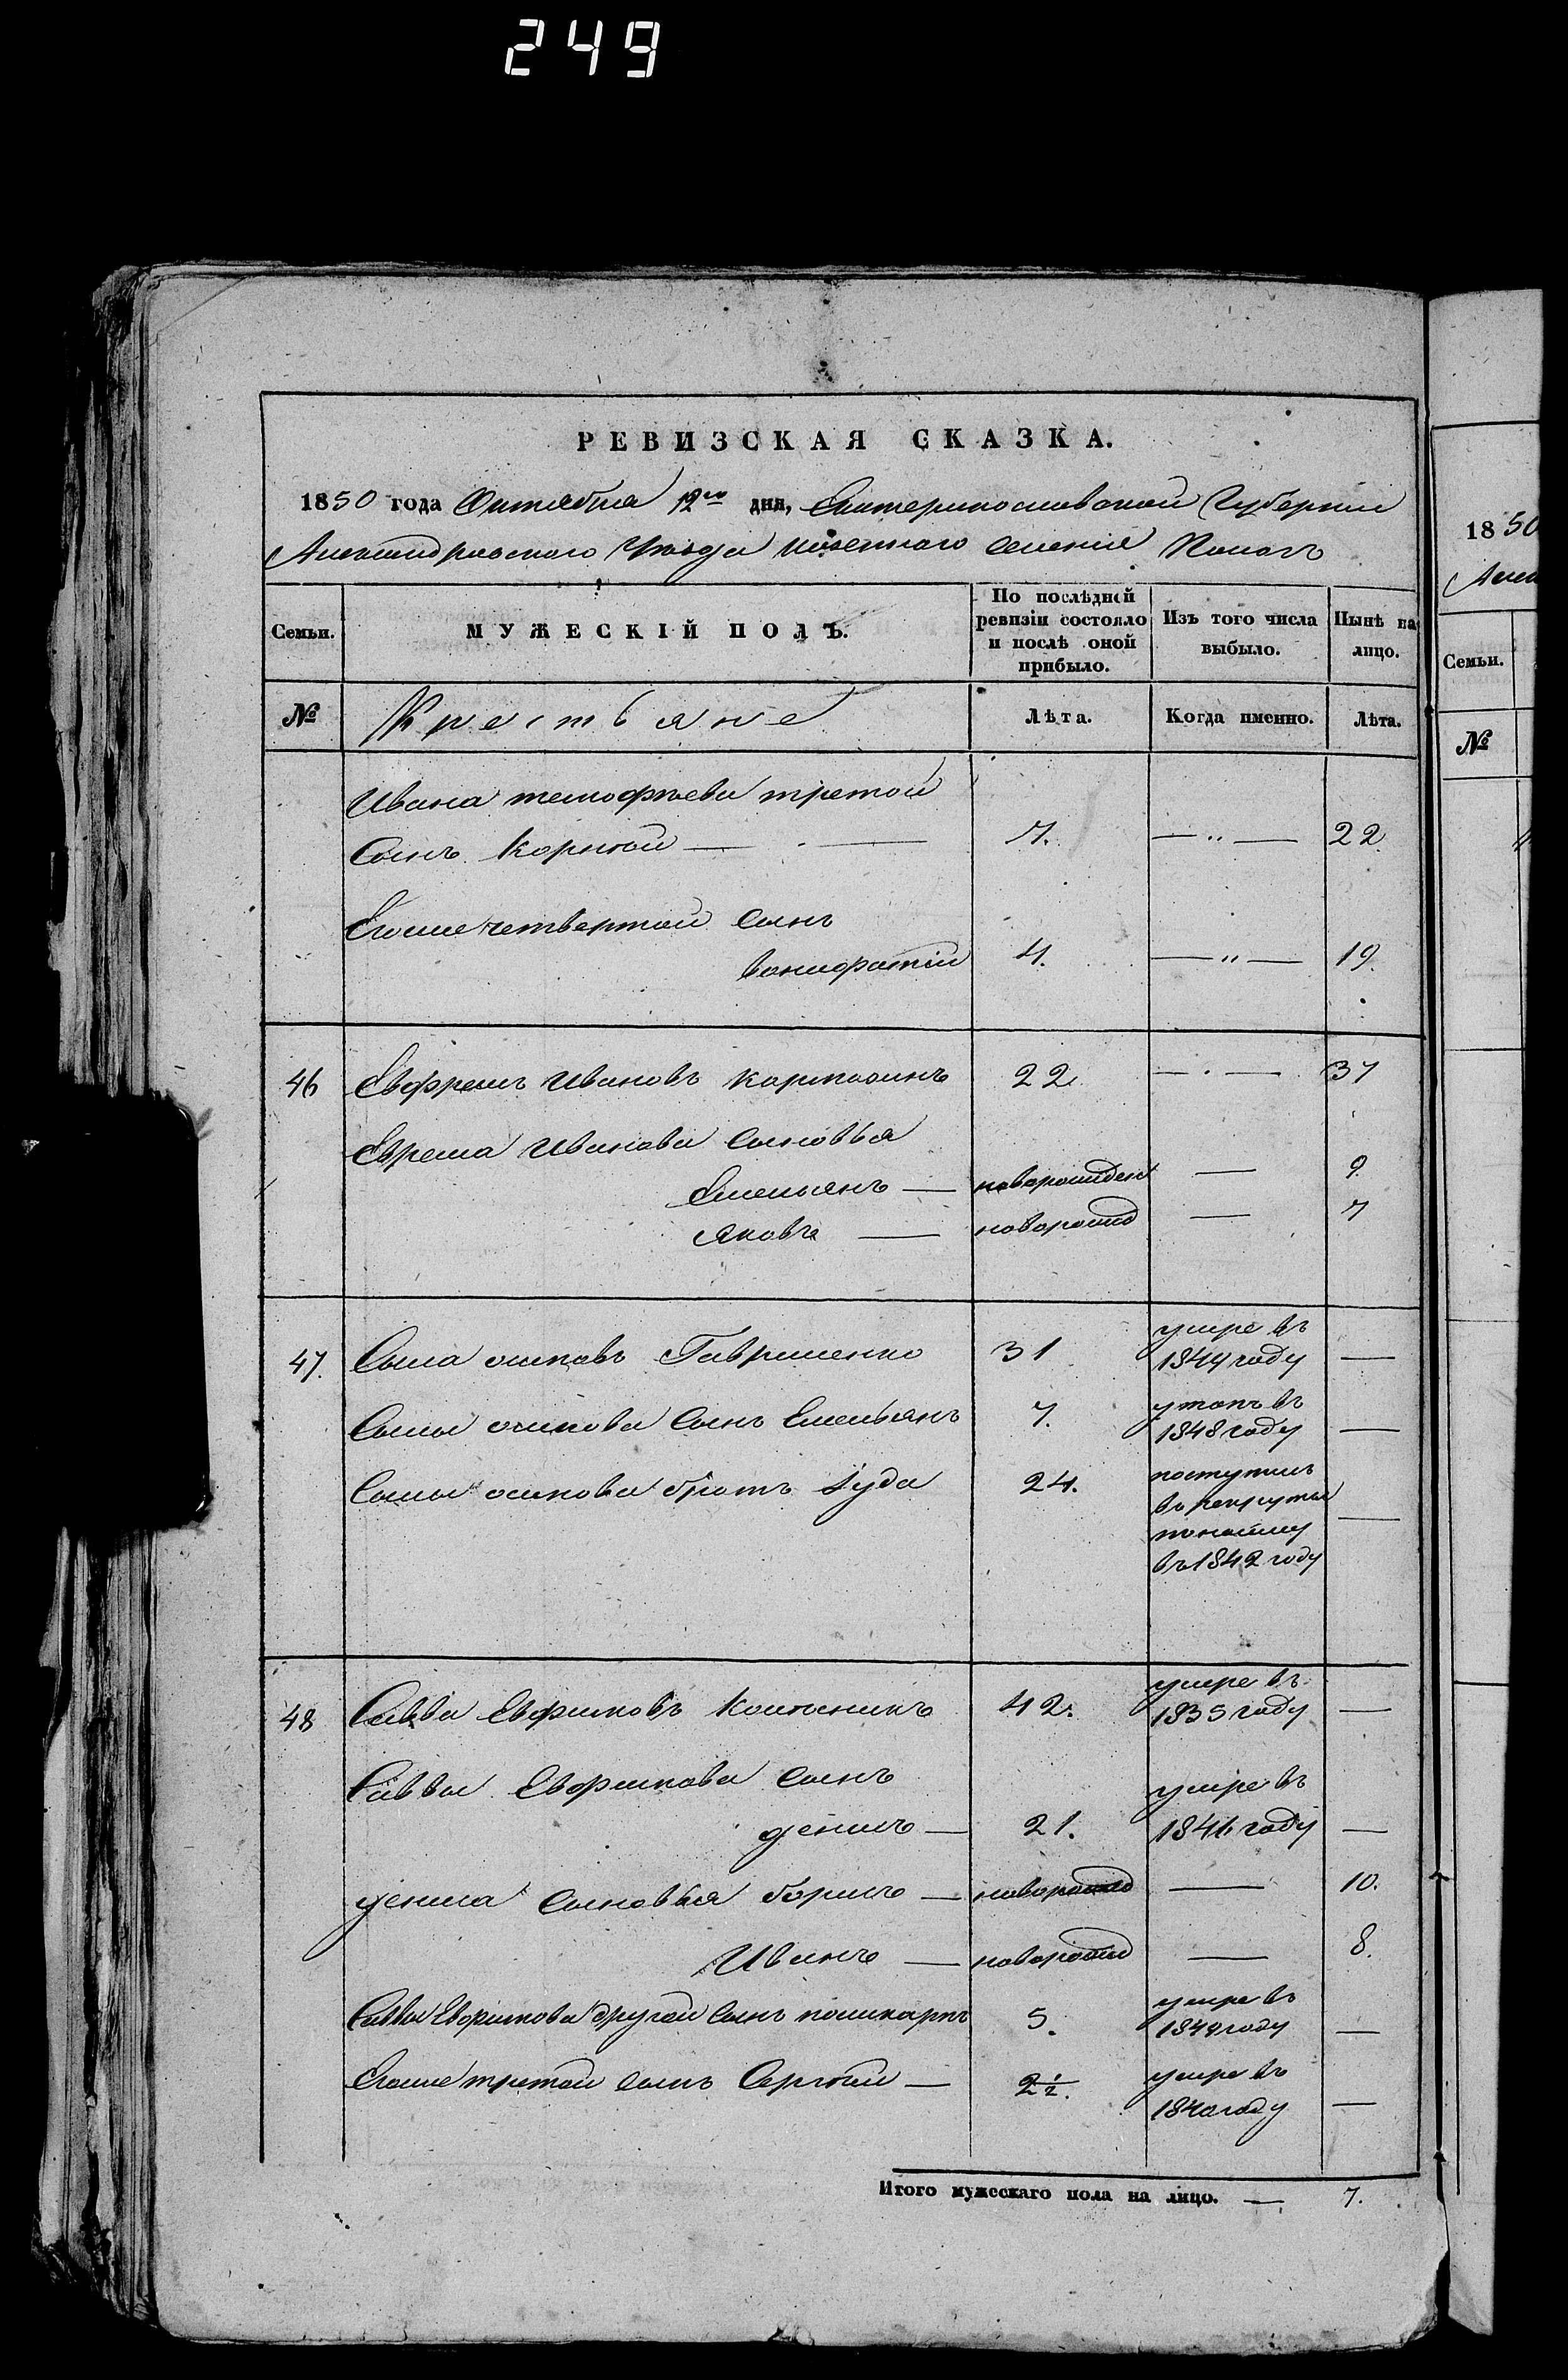 249
РЕВИЗСКАЯ СКАЗКА.
1850 года Октября 12го дня, Екатеринославской Губернии
Александровского Уезда казенного селения
Семьи. МУЖЕСКІЙ ПОЛЪ. По послѣдней ревизіи состояло и послѣ оной прибыло. Изъ того числа выбыло. Нынѣ на лицо.
№ Крестьяне Лѣта. Когда именно. Лѣта.
Ивана темофѣева третой
Сынъ Корнѣй — 7. — " — 22
Егоже четвертой Сынъ
вонифатій 4. — " — 19.
46 Ефремъ Ивановъ 22 — . — 37
Ефрема Иванова Сыновья
Емельянъ — новорожден — 9.
Яковъ — новорожд — 7
47. осиповъ Гавриленко 31 умре въ 1849 году —
осипова Сынъ Емельянъ 7. утопъ въ 1848 году —
осипова братъ Іуда 24. поступилъ въ рекруты по найму въ 1842 году —
48 Савва Евфимовъ 42. умре въ 1835 году —
Саввы Евфимова Сынъ
денисъ — 21. умре въ 1846 году —
дениса Сыновья борисъ — новорожд — 10.
Иванъ — новорожд — 8.
Саввы Евфимова другой Сынъ поликарпъ 5. умре въ 1849 году —
Егоже третой сынъ Сергѣй — 2 1/2. умре въ 1840 году —
Итого мужескаго пола на лицо. — 7.
1850
Семьи.
№